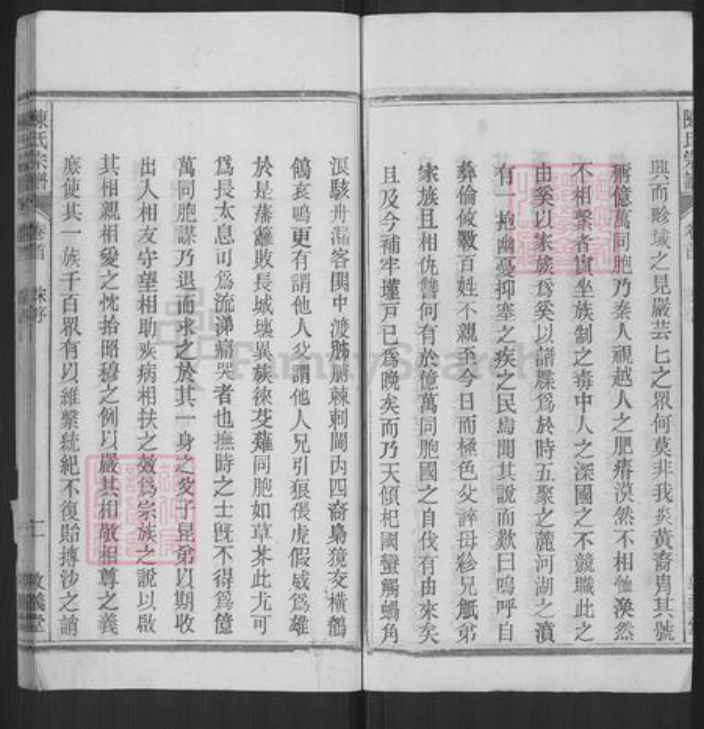 興而畛域之見嚴芸芸之眾何莫非我炎黃裔胄其號
稱億萬同胞乃秦人視越人之肥瘠漠然不相恤渙然
不相繫者實坐族制之毒中人之深國之不競職此之
由奚以家族爲奚以譜牒爲於時五聚之麓河湖之濆
有一抱幽憂抑塞之疾之民焉聞其說而歎曰嗚呼自
彝倫攸斁百姓不親至今日而極色父誶母紾兄觝弟
家族且相仇讐何有於億萬同胞國之自伐有由來矣
且及今補牢墐戸已爲晚矣而乃天傾杞國蠻觸蝸角
浪駭舟漏客閧中渡肺腑棘刺閫内四裔梟獍交橫鶺
鴒哀鳴更有謂他人父謂他人兄引狼倀虎假威爲雄
於是藩籬敗長城壞異族徠芟薙同胞如草芥此尤可
爲長太息可爲流涕痛哭者也撫時之士旣不得爲億
萬同胞謀乃退而求之於其一身之父子昆弟以期收
出入相友守望相助疾病相扶之效爲宗族之說以啟
其相親相愛之忱拾昭穆之例以嚴其相敬相尊之義
庶使其一族千百眾有以維繫統紀不復貽摶沙之誚
陳氏宗譜
卷首
序
敦義堂
FamilySearch